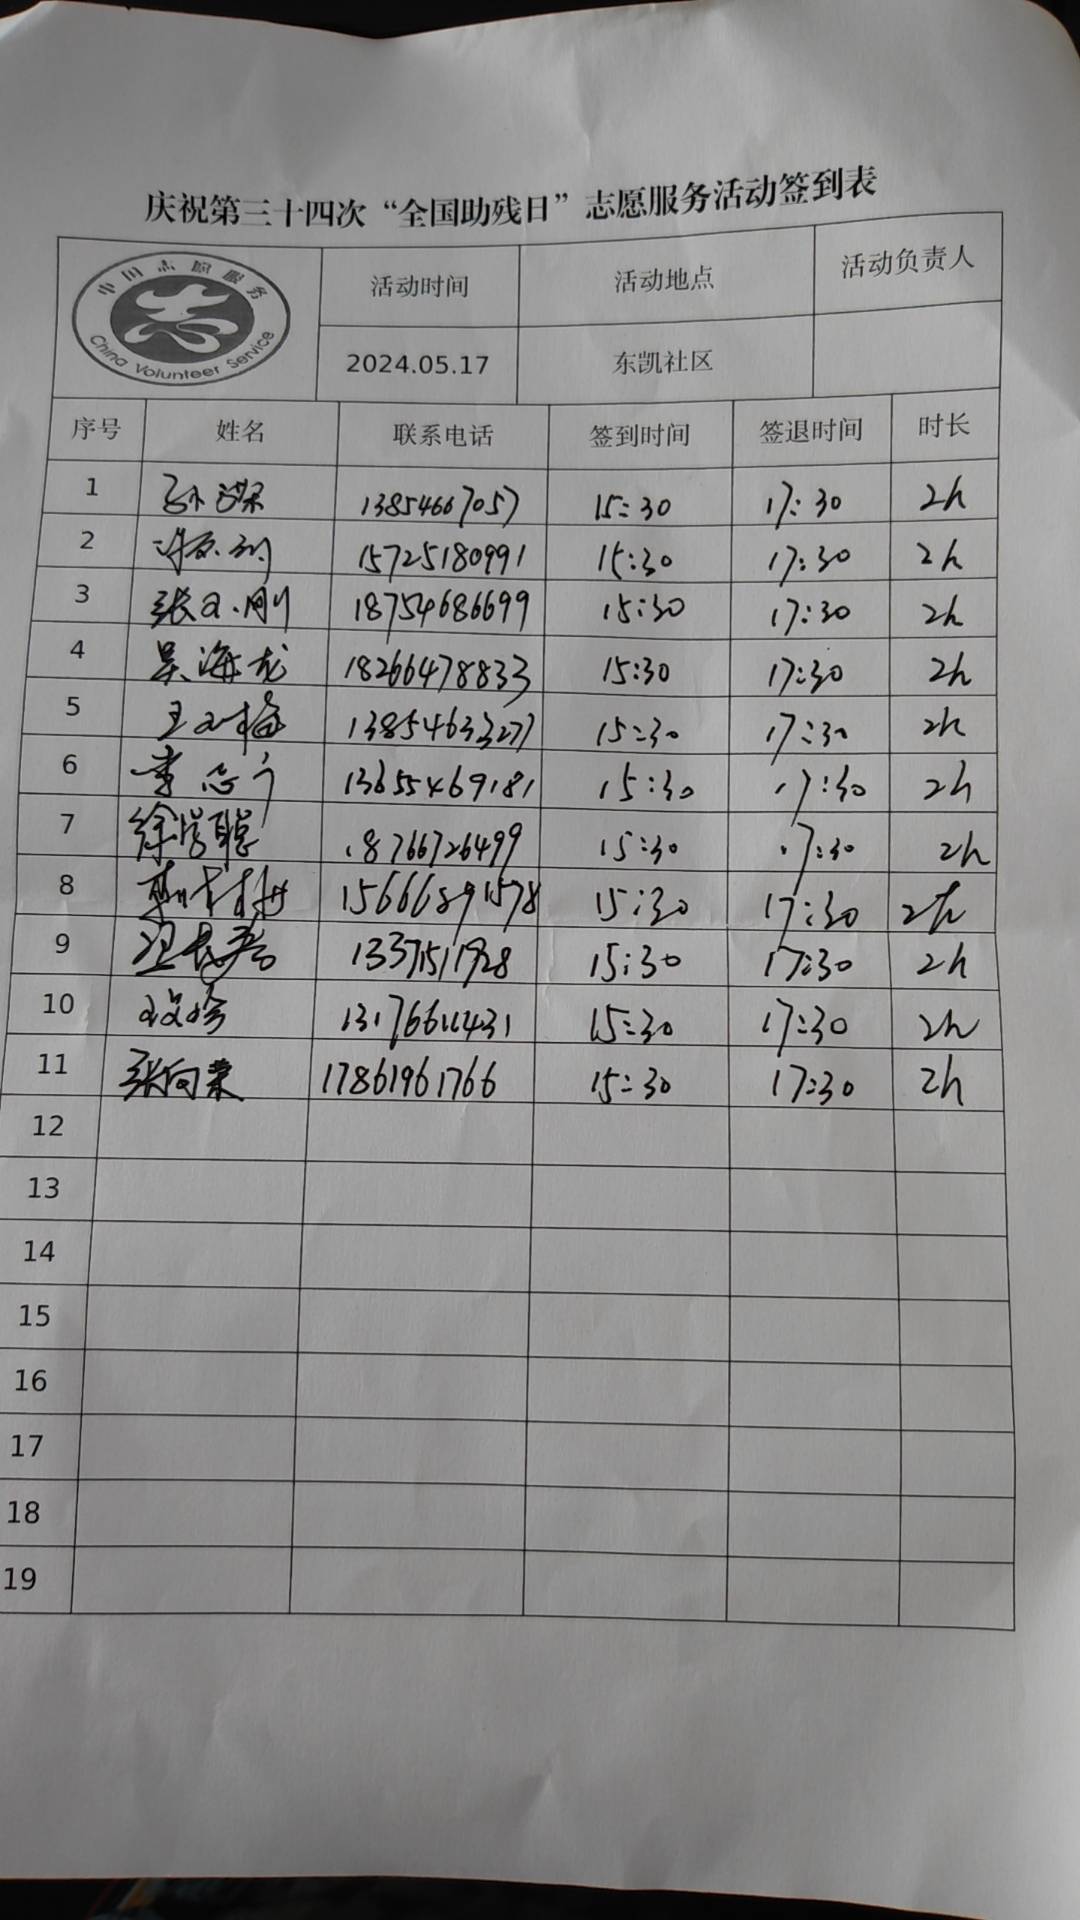 庆祝第三十四次“全国助残日”志愿服务活动签到表
中国志愿服务
China Volunteer Service
活动时间 活动地点 活动负责人
2024.05.17 东凯社区
序号 姓名 联系电话 签到时间 签退时间 时长
1 13854667057 15:30 17:30 2h
2 15725180991 15:30 17:30 2h
3 张文刚 18754686699 15:30 17:30 2h
4 吴海龙 18266478833 15:30 17:30 2h
5 13854633277 15:30 17:30 2h
6 13655469181 15:30 17:30 2h
7 18766726499 15:30 17:30 2h
8 15666891578 15:30 17:30 2h
9 13371511928 15:30 17:30 2h
10 15:30 17:30 2h
11 张向荣 17861961766 15:30 17:30 2h
12
13
14
15
16
17
18
19